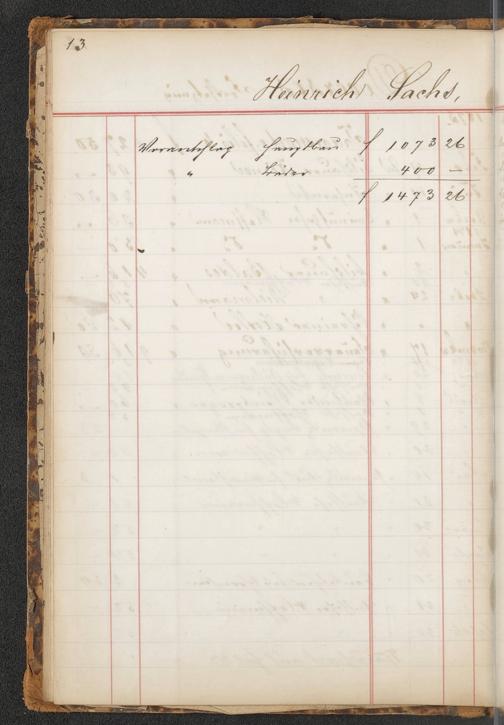 13
Heinrich Sachs,
Voranschlag Hauptbau f 1073 26
" Bäder 400 —
f 1473 26